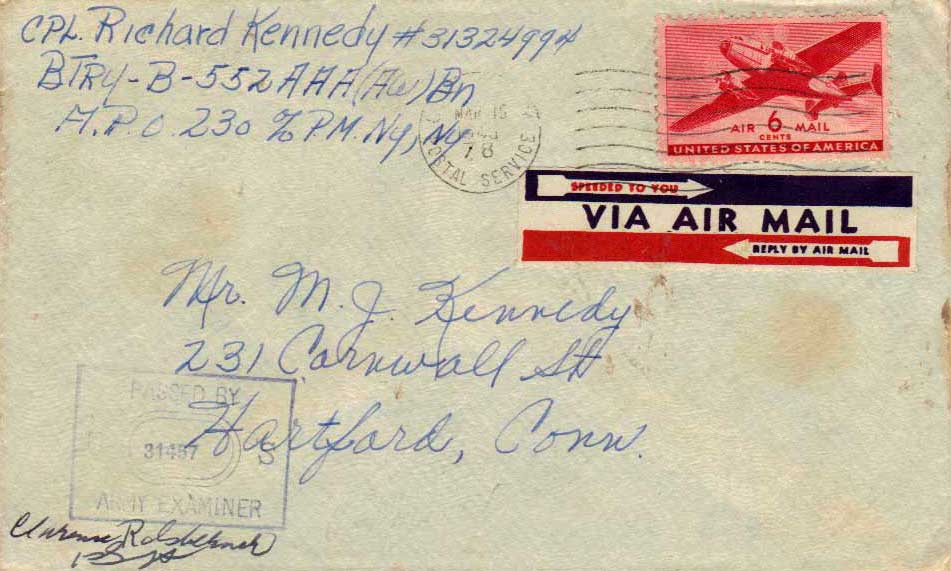 CPL. Richard Kennedy #31324994
BTRY-B-552 AAA (AW) Bn
A.P.O. 230 % P.M. Ny, Ny
MAR 15
7 8
POSTAL SERVICE
AIR 6 MAIL
CENTS
UNITED STATES OF AMERICA
SPEEDED TO YOU
VIA AIR MAIL
REPLY BY AIR MAIL
Mr. M. J. Kennedy
231 Cornwall St
Hartford, Conn.
PASSED BY
S
ARMY EXAMINER
Clarence